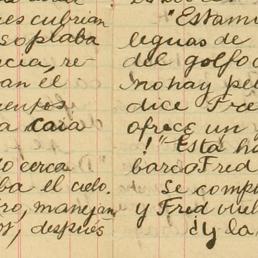 es cubrian
soplaba
cia, re-
an el
mentos
a caia
lo cerca
ba el cielo.
ro, manejan
os, después
"Estami
leguas de
del golfo
no hay pe
dice Fre
ofrece un
!" Esta ha
barco Fred
Se comp
y Fred vue
¿y la